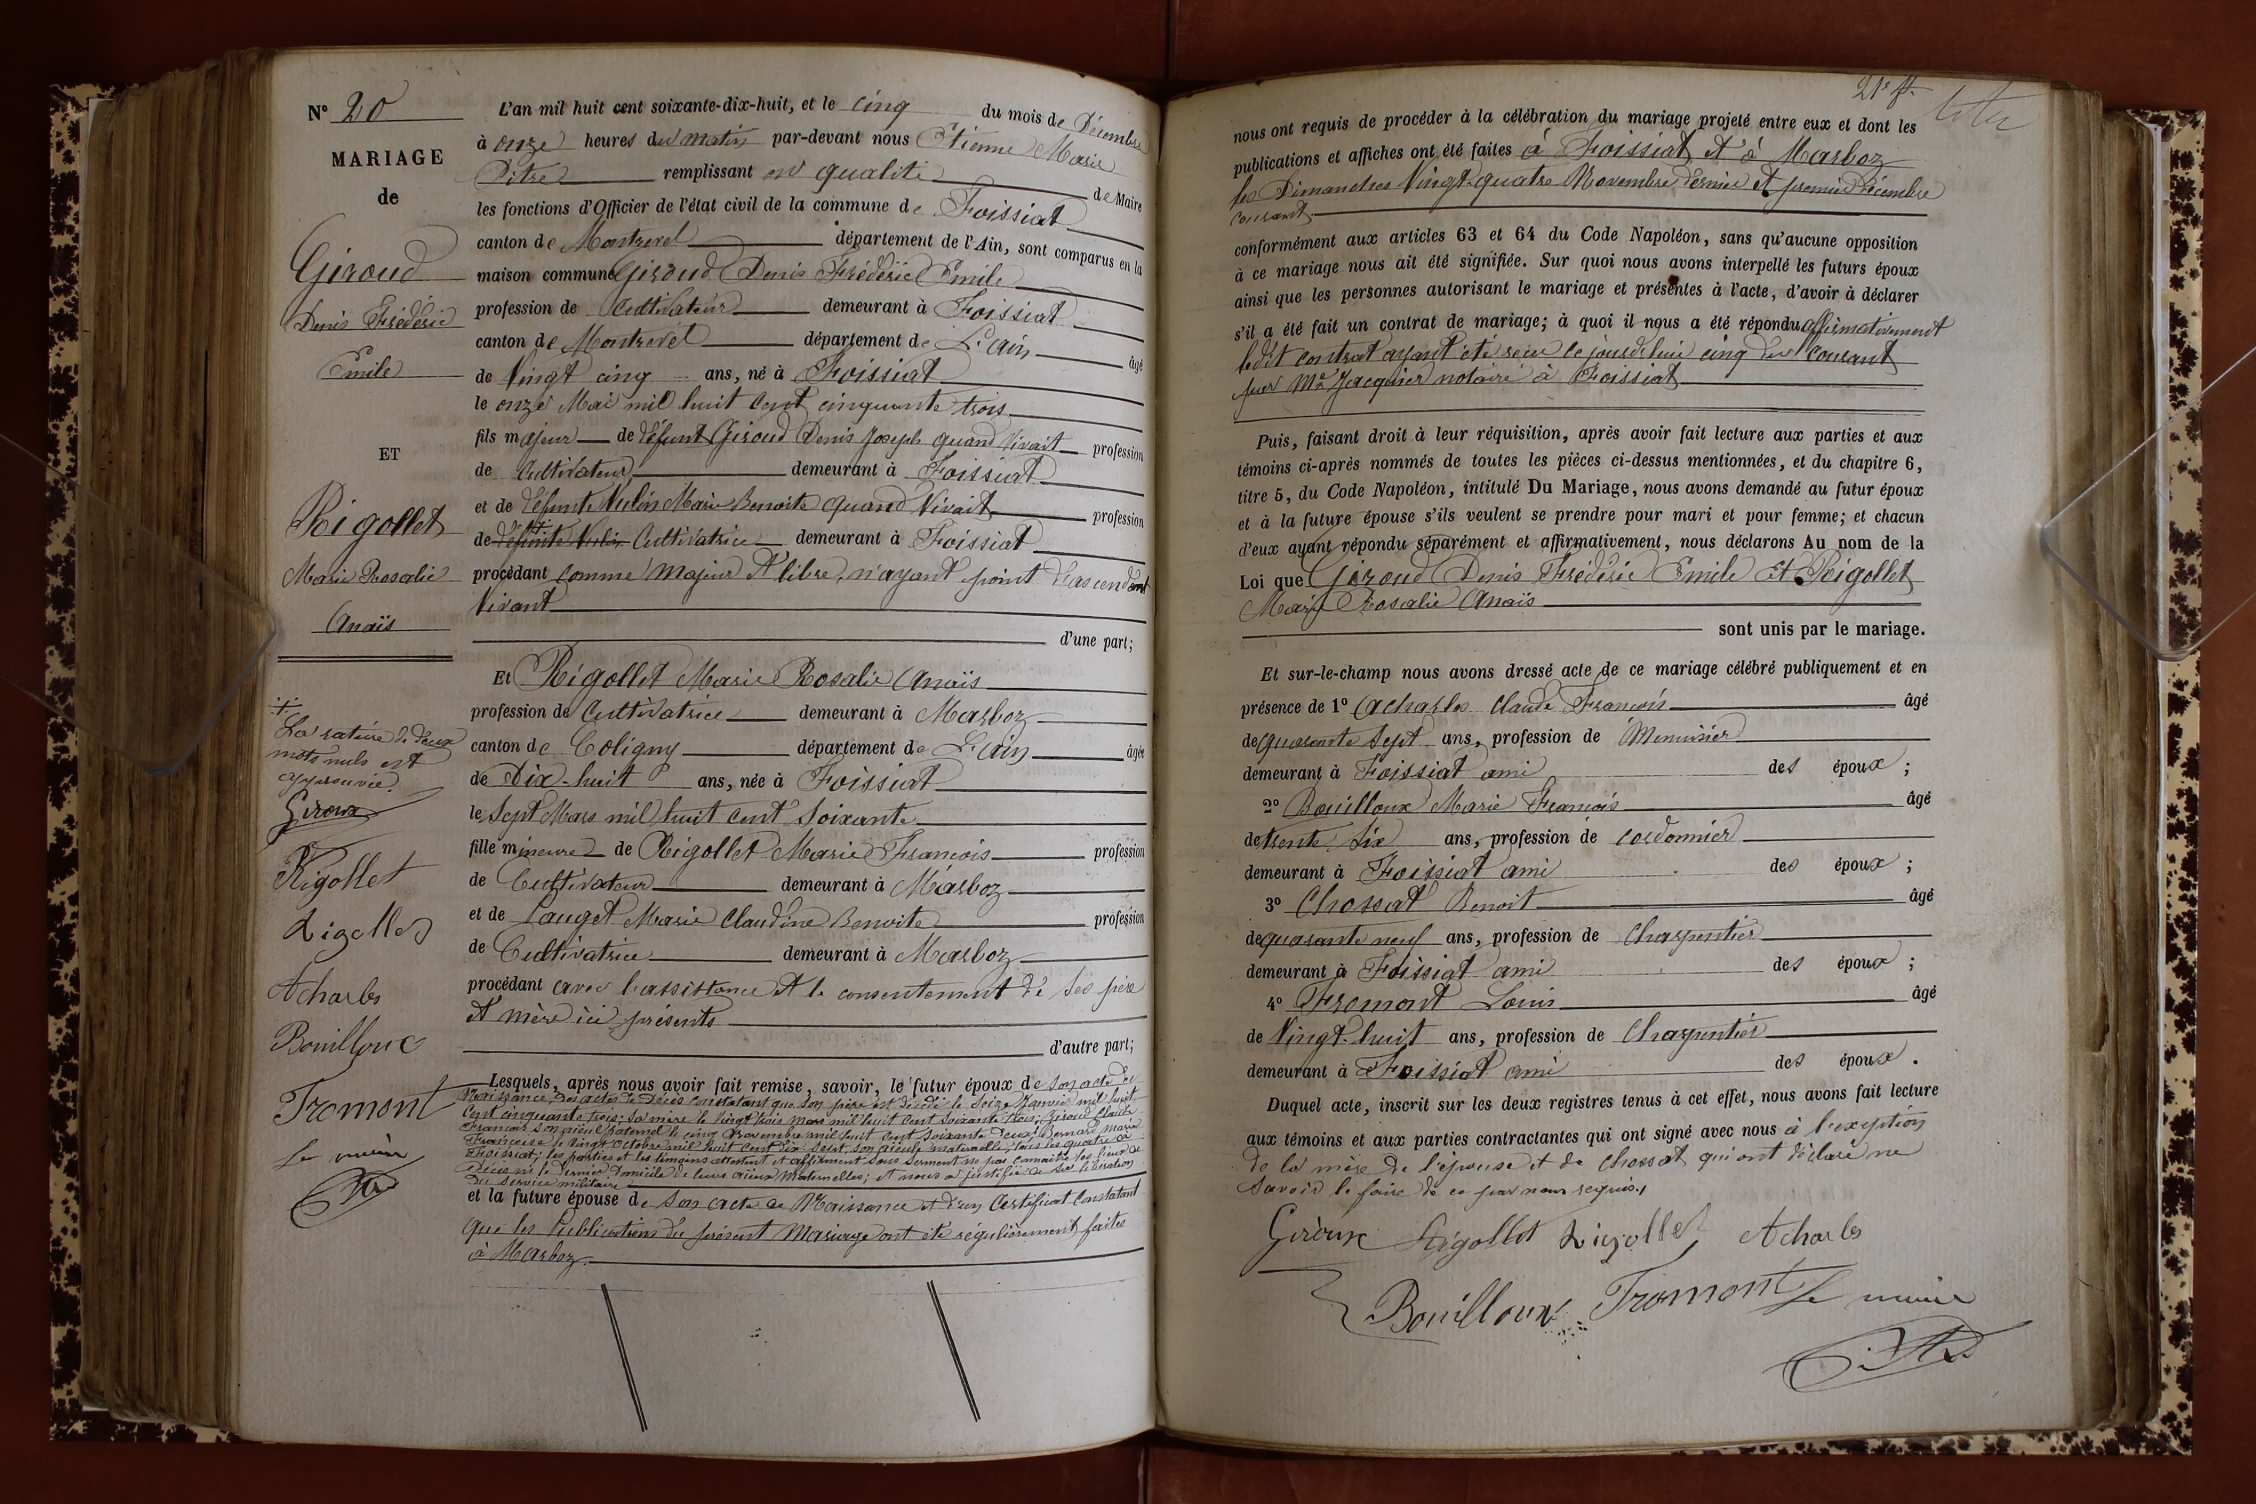 N° 20
MARIAGE
de
Giroud
Denis Frédéric
Emile
ET
Rigollet
Marie Rosalie
Anaïs
La rature de deux
mots nuls est
approuvée.
Giroux
Rigollet
Rigollet
Acharles
Bouilloux
Fromont
Le maire
L'an mil huit cent soixante-dix-huit, et le cinq du mois de Décembre
à onze heures du matin par-devant nous Etienne Marie
Pitre remplissant en qualité de Maire
les fonctions d'Officier de l'état civil de la commune de Foissiat
canton de Montrevel département de l'Ain, sont comparus en la
maison commune Giroud Denis Frédéric Emile
profession de Cultivateur demeurant à Foissiat
canton de Montrevel département de L'ain âgé
de Vingt cinq ans, né à Foissiat
le onze Mai mil huit cent cinquante trois
fils majeur de défunt Giroud Denis Joseph quand vivait profession
de Cultivateur demeurant à Foissiat
et de défunte Marie Benoite quand vivait profession
de Cultivatrice demeurant à Foissiat
procédant comme majeur et libre, n'ayant point d'ascendant
vivant
d'une part;
Et Rigollet Marie Rosalie Anaïs
profession de Cultivatrice demeurant à Marboz
canton de Coligny département de L'ain âgée
de Dix-huit ans, née à Foissiat
le Sept Mars mil huit cent soixante
fille mineure de Rigollet Marie François profession
de Cultivateur demeurant à Marboz
et de Pauget Marie Claudine Benoite profession
de Cultivatrice demeurant à Marboz
procédant avec l'assistance et le consentement de ses père
et mère ici présents
d'autre part;
Lesquels, après nous avoir fait remise, savoir, le futur époux de son acte de
Naissance, des actes de Décès constatant que son père est décédé le seize Janvier mil huit
cent cinquante trois; sa mère le vingt trois mars mil huit cent soixante trois; Giroud Claude
François son aïeul paternel le cinq Novembre mil huit cent soixante deux; Bernard Marie
Françoise le vingt octobre mil huit cent dix sept, son aïeule maternelle, tous les quatre à
Foissiat; les parties et les témoins attestent et affirment sous serment ne pas connaître les lieux de
Décès ni le dernier domicile de leurs aïeux maternelles; et nous a justifié de sa libération
du service militaire
et la future épouse de son acte de Naissance et d'un Certificat constatant
que les Publications du présent Mariage ont été régulièrement faites
à Marboz.
21e ft.
nous ont requis de procéder à la célébration du mariage projeté entre eux et dont les
publications et affiches ont été faites à Foissiat et à Marboz
les Dimanches Vingt-quatre Novembre dernier et premier décembre
courant
conformément aux articles 63 et 64 du Code Napoléon, sans qu'aucune opposition
à ce mariage nous ait été signifiée. Sur quoi nous avons interpellé les futurs époux
ainsi que les personnes autorisant le mariage et présentes à l'acte, d'avoir à déclarer
s'il a été fait un contrat de mariage; à quoi il nous a été répondu affirmativement
ledit contrat ayant été reçu ce jourd'hui cinq du courant
par Me Jacquier notaire à Foissiat
Puis, faisant droit à leur réquisition, après avoir fait lecture aux parties et aux
témoins ci-après nommés de toutes les pièces ci-dessus mentionnées, et du chapitre 6,
titre 5, du Code Napoléon, intitulé Du Mariage, nous avons demandé au futur époux
et à la future épouse s'ils veulent se prendre pour mari et pour femme; et chacun
d'eux ayant répondu séparément et affirmativement, nous déclarons Au nom de la
Loi que Giroud Denis Frédéric Emile et Rigollet
Marie Rosalie Anaïs
sont unis par le mariage.
Et sur-le-champ nous avons dressé acte de ce mariage célébré publiquement et en
présence de 1° Acharles Claude François âgé
de quarante sept ans, profession de Menuisier
demeurant à Foissiat ami des époux ;
2° Bouilloux Marie François âgé
de trente six ans, profession de cordonnier
demeurant à Foissiat ami des époux ;
3° Chossat Benoit âgé
de quarante neuf ans, profession de Charpentier
demeurant à Foissiat ami des époux ;
4° Fromont Louis âgé
de Vingt-huit ans, profession de Charpentier
demeurant à Foissiat ami des époux .
Duquel acte, inscrit sur les deux registres tenus à cet effet, nous avons fait lecture
aux témoins et aux parties contractantes qui ont signé avec nous à l'exeption
de la mère de l'épouse et de Chossat qui ont déclaré ne
savoir le faire de ce par nous requis.
Giroux Rigollet Rigollet Acharles
Bouilloux Fromont Le maire